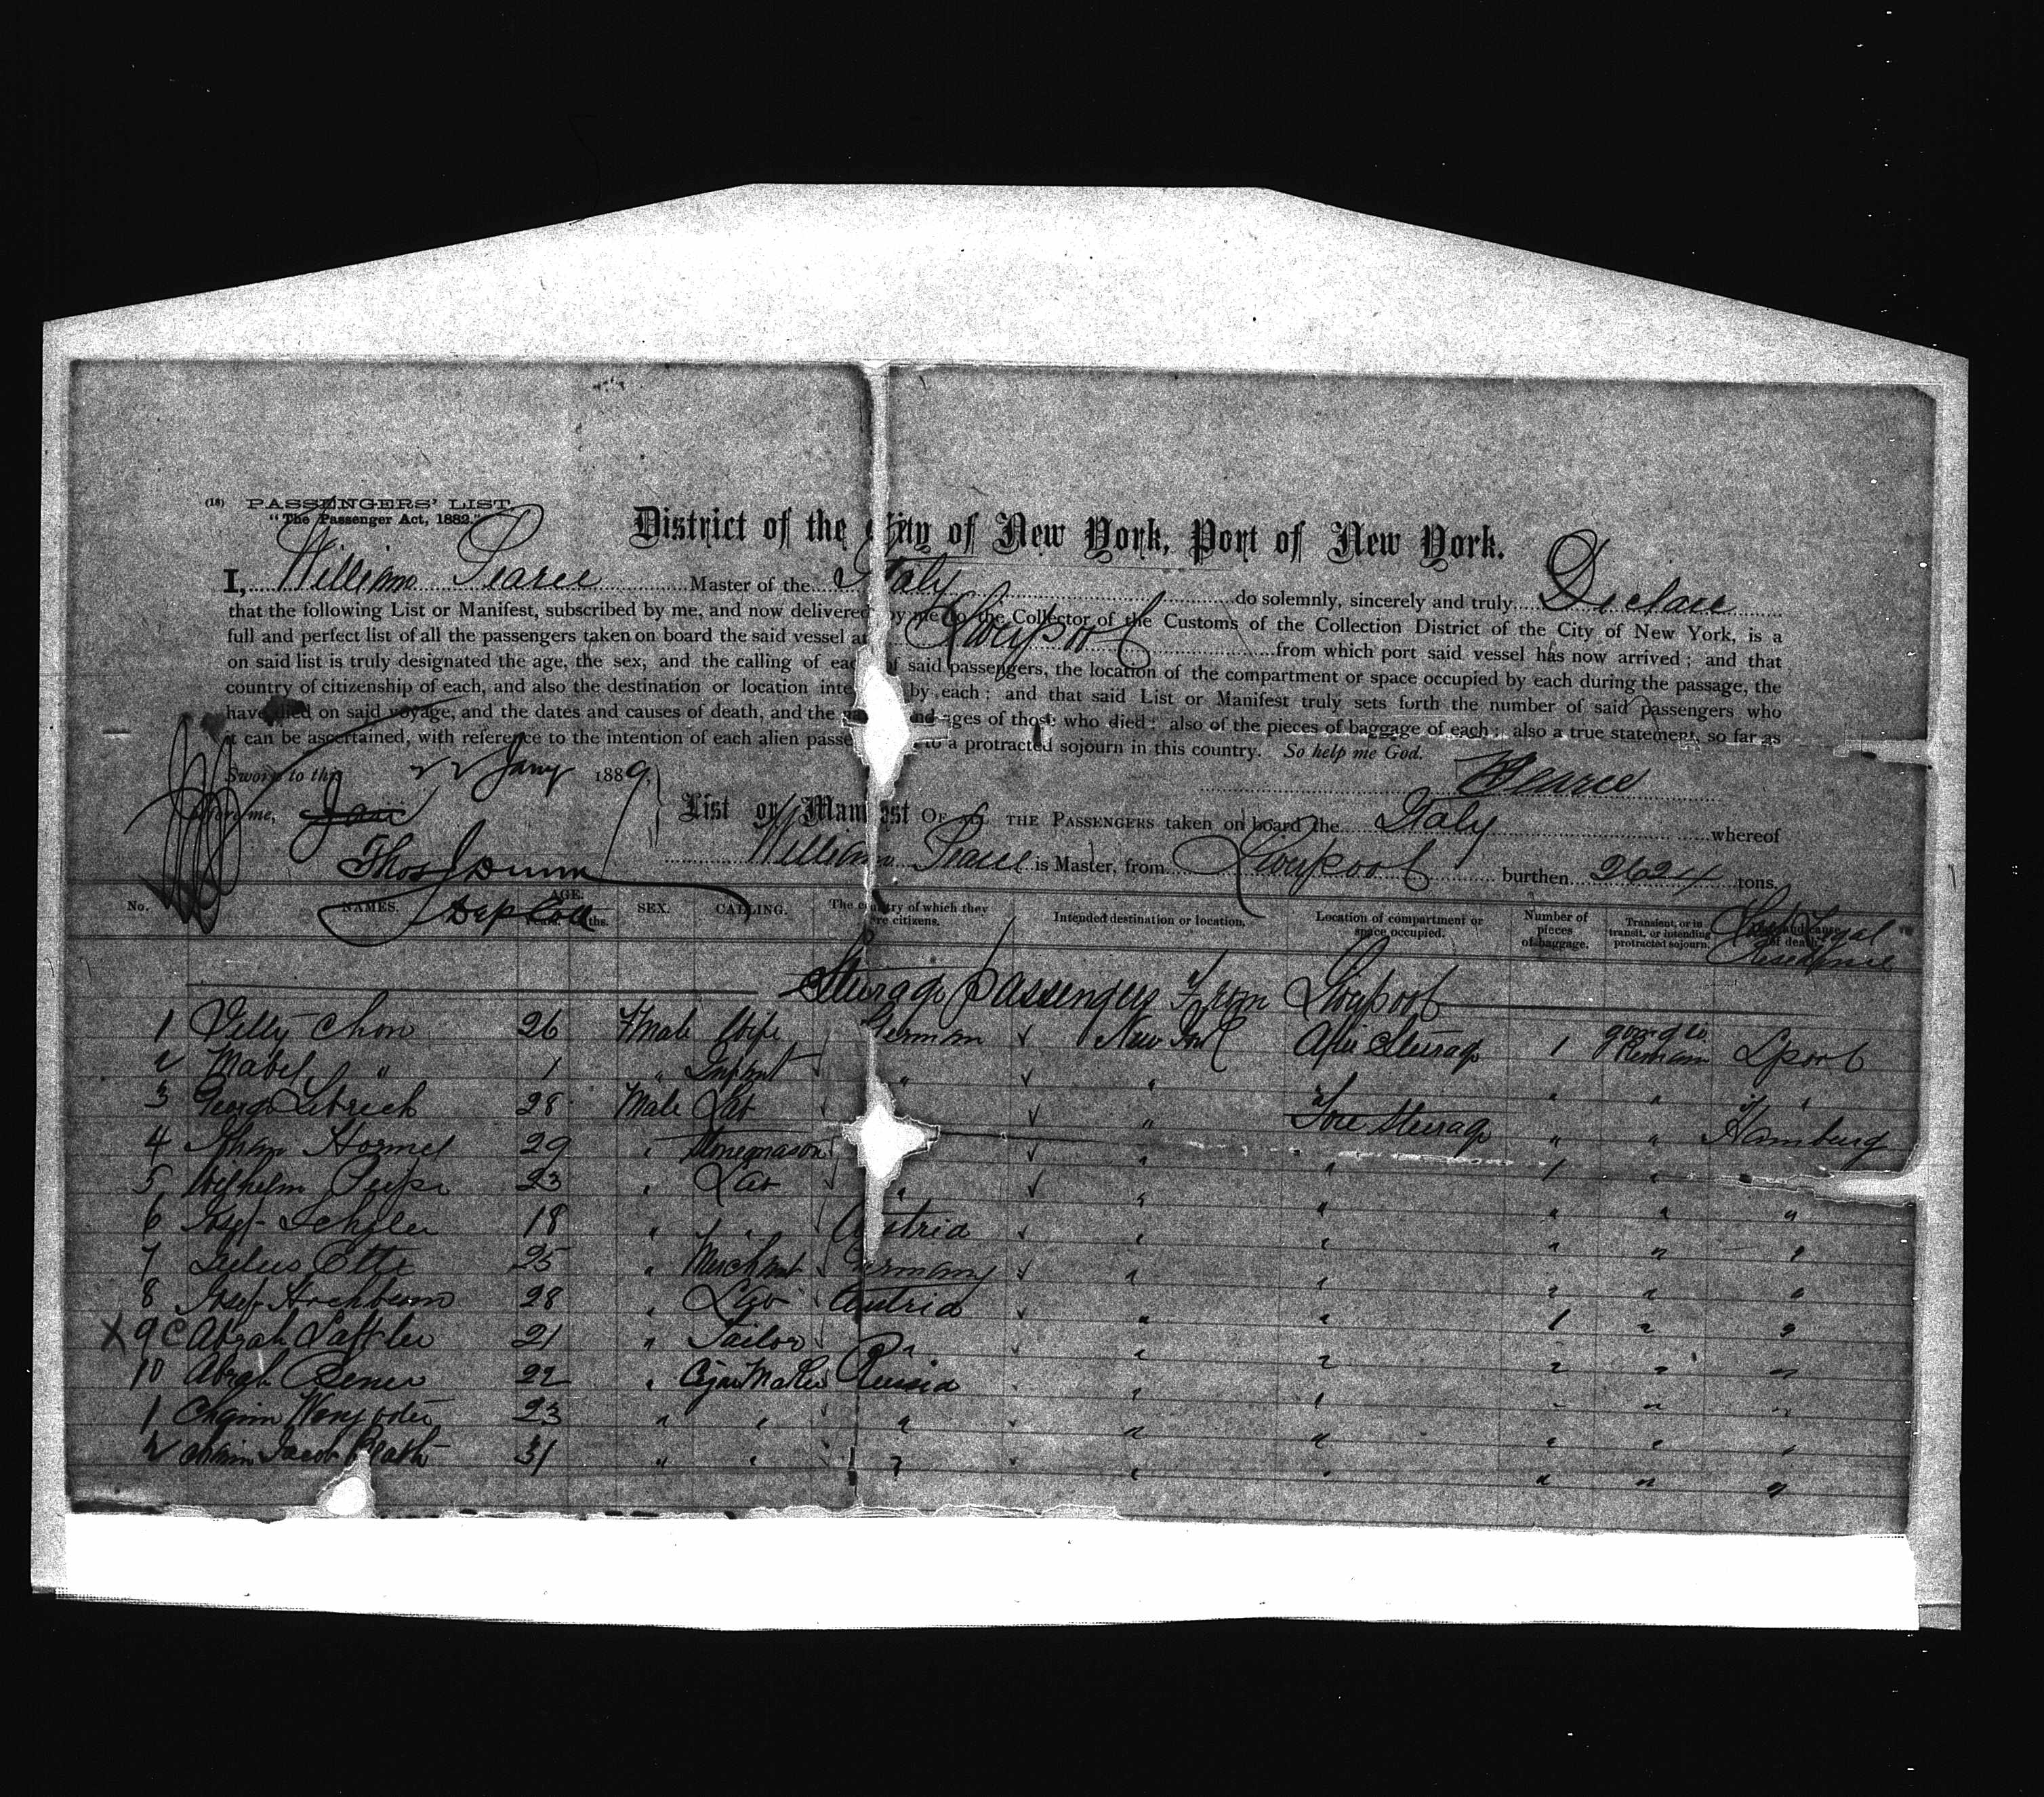 (18) PASSENGERS' LIST.
"The Passenger Act, 1882."
District of the City of New York, Port of New York.
I, William Pearce Master of the Italy do solemnly, sincerely and truly Declare
that the following List or Manifest, subscribed by me, and now delivered by me to the Collector of the Customs of the Collection District of the City of New York, is a
full and perfect list of all the passengers taken on board the said vessel at Liverpool from which port said vessel has now arrived; and that
on said list is truly designated the age, the sex, and the calling of each of said passengers, the location of the compartment or space occupied by each during the passage, the
country of citizenship of each, and also the destination or location inte by each; and that said List or Manifest truly sets forth the number of said passengers who
have died on said voyage, and the dates and causes of death, and the and ages of those who died; also of the pieces of baggage of each; also a true statement, so far as
it can be ascertained, with reference to the intention of each alien passe to a protracted sojourn in this country. So help me God.
Sworn to this 22 Jany 1889,
Pearce
before me, Jan
List or Manifest OF ALL THE PASSENGERS taken on board the Italy whereof
Thos Dunn
William Pearce is Master, from Liverpool burthen 2624 tons.
Dep Coll
No. NAMES. AGE. Years. Mths. SEX. CALLING. The country of which they are citizens. Intended destination or location. Location of compartment or space occupied. Number of pieces of baggage. Transient, or in transit, or intending protracted sojourn. Last Legal Residence
Steerage Passengers From Liverpool
1 Chon 26 Fmale Wife German New York After Steerage 1 going to Remain Lpool
2 Mabel " 1 " Infant " " " " " "
3 George 28 Male Lab " Fore Steerage " " Hamburg
4 Hormel 29 " Stonemason " " 1 "
5 Wilhelm 23 " Lab " " " " " "
6 Josef 18 " " Austria " " " " "
7 Julius Otte 25 " Merchant Germany " " " " "
8 Josef 28 " Lab Austria " " 1 " "
X 9 C Abrah 21 " Tailor " " " " " "
10 Abrah 22 " Cigar Maker Russia " " " " "
1 Chaim 23 " " " " " " " "
2 Chaim Jacob 31 " " " " " " " "